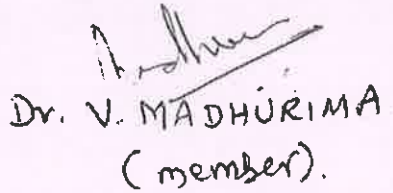 Dr. V. MADHURIMA
(member).